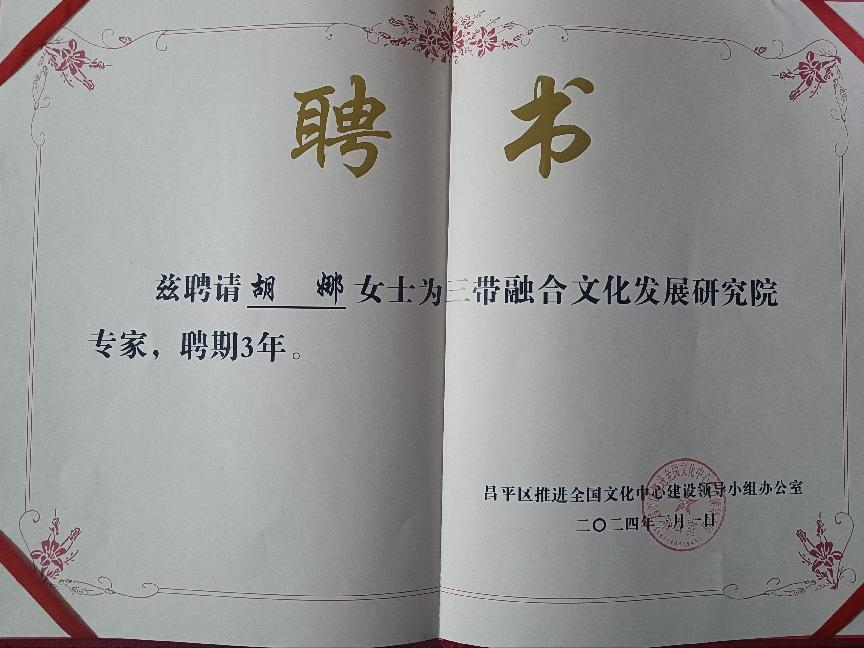 聘书
兹聘请胡 娜女士为三带融合文化发展研究院
专家，聘期3年。
昌平区推进全国文化中心建设领导小组办公室
二〇二四年 月一日